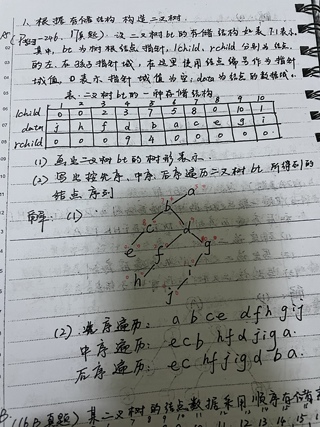 1. 根据存储结构构造二叉树.
(P₂₅₅-246. 1真题) 设二叉树bt的存储结构如表7.1表示.
其中, bt为树根结点指针, lchild, rchild 分别为结点
的左、右孩子指针域, 在这里使用结点编号作为指针
域值, 0表示指针域值为空; data为结点的数据域.
表:二叉树bt的一种存储结构
1 2 3 4 5 6 7 8 9 10
lchild 0 0 2 3 7 5 8 0 10 1
data j h f d b a c e g i
rchild 0 0 0 9 4 0 0 0 0 0
(1) 画出二叉树bt的树形表示.
(2) 写出按先序、中序、后序遍历二叉树bt所得到的
结点序列
解: (1)
a
b
c d
e f g
h i
j
(2) 先序遍历: a b c e d f h g i j
中序遍历: e c b h f d j i g a.
后序遍历: e c h f j i g d b a.
(16B真题) 某二叉树的结点数据采用顺序存储